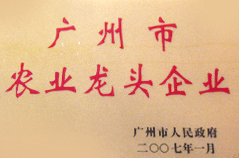 广州市
农业龙头企业
广州市人民政府
二〇〇七年一月